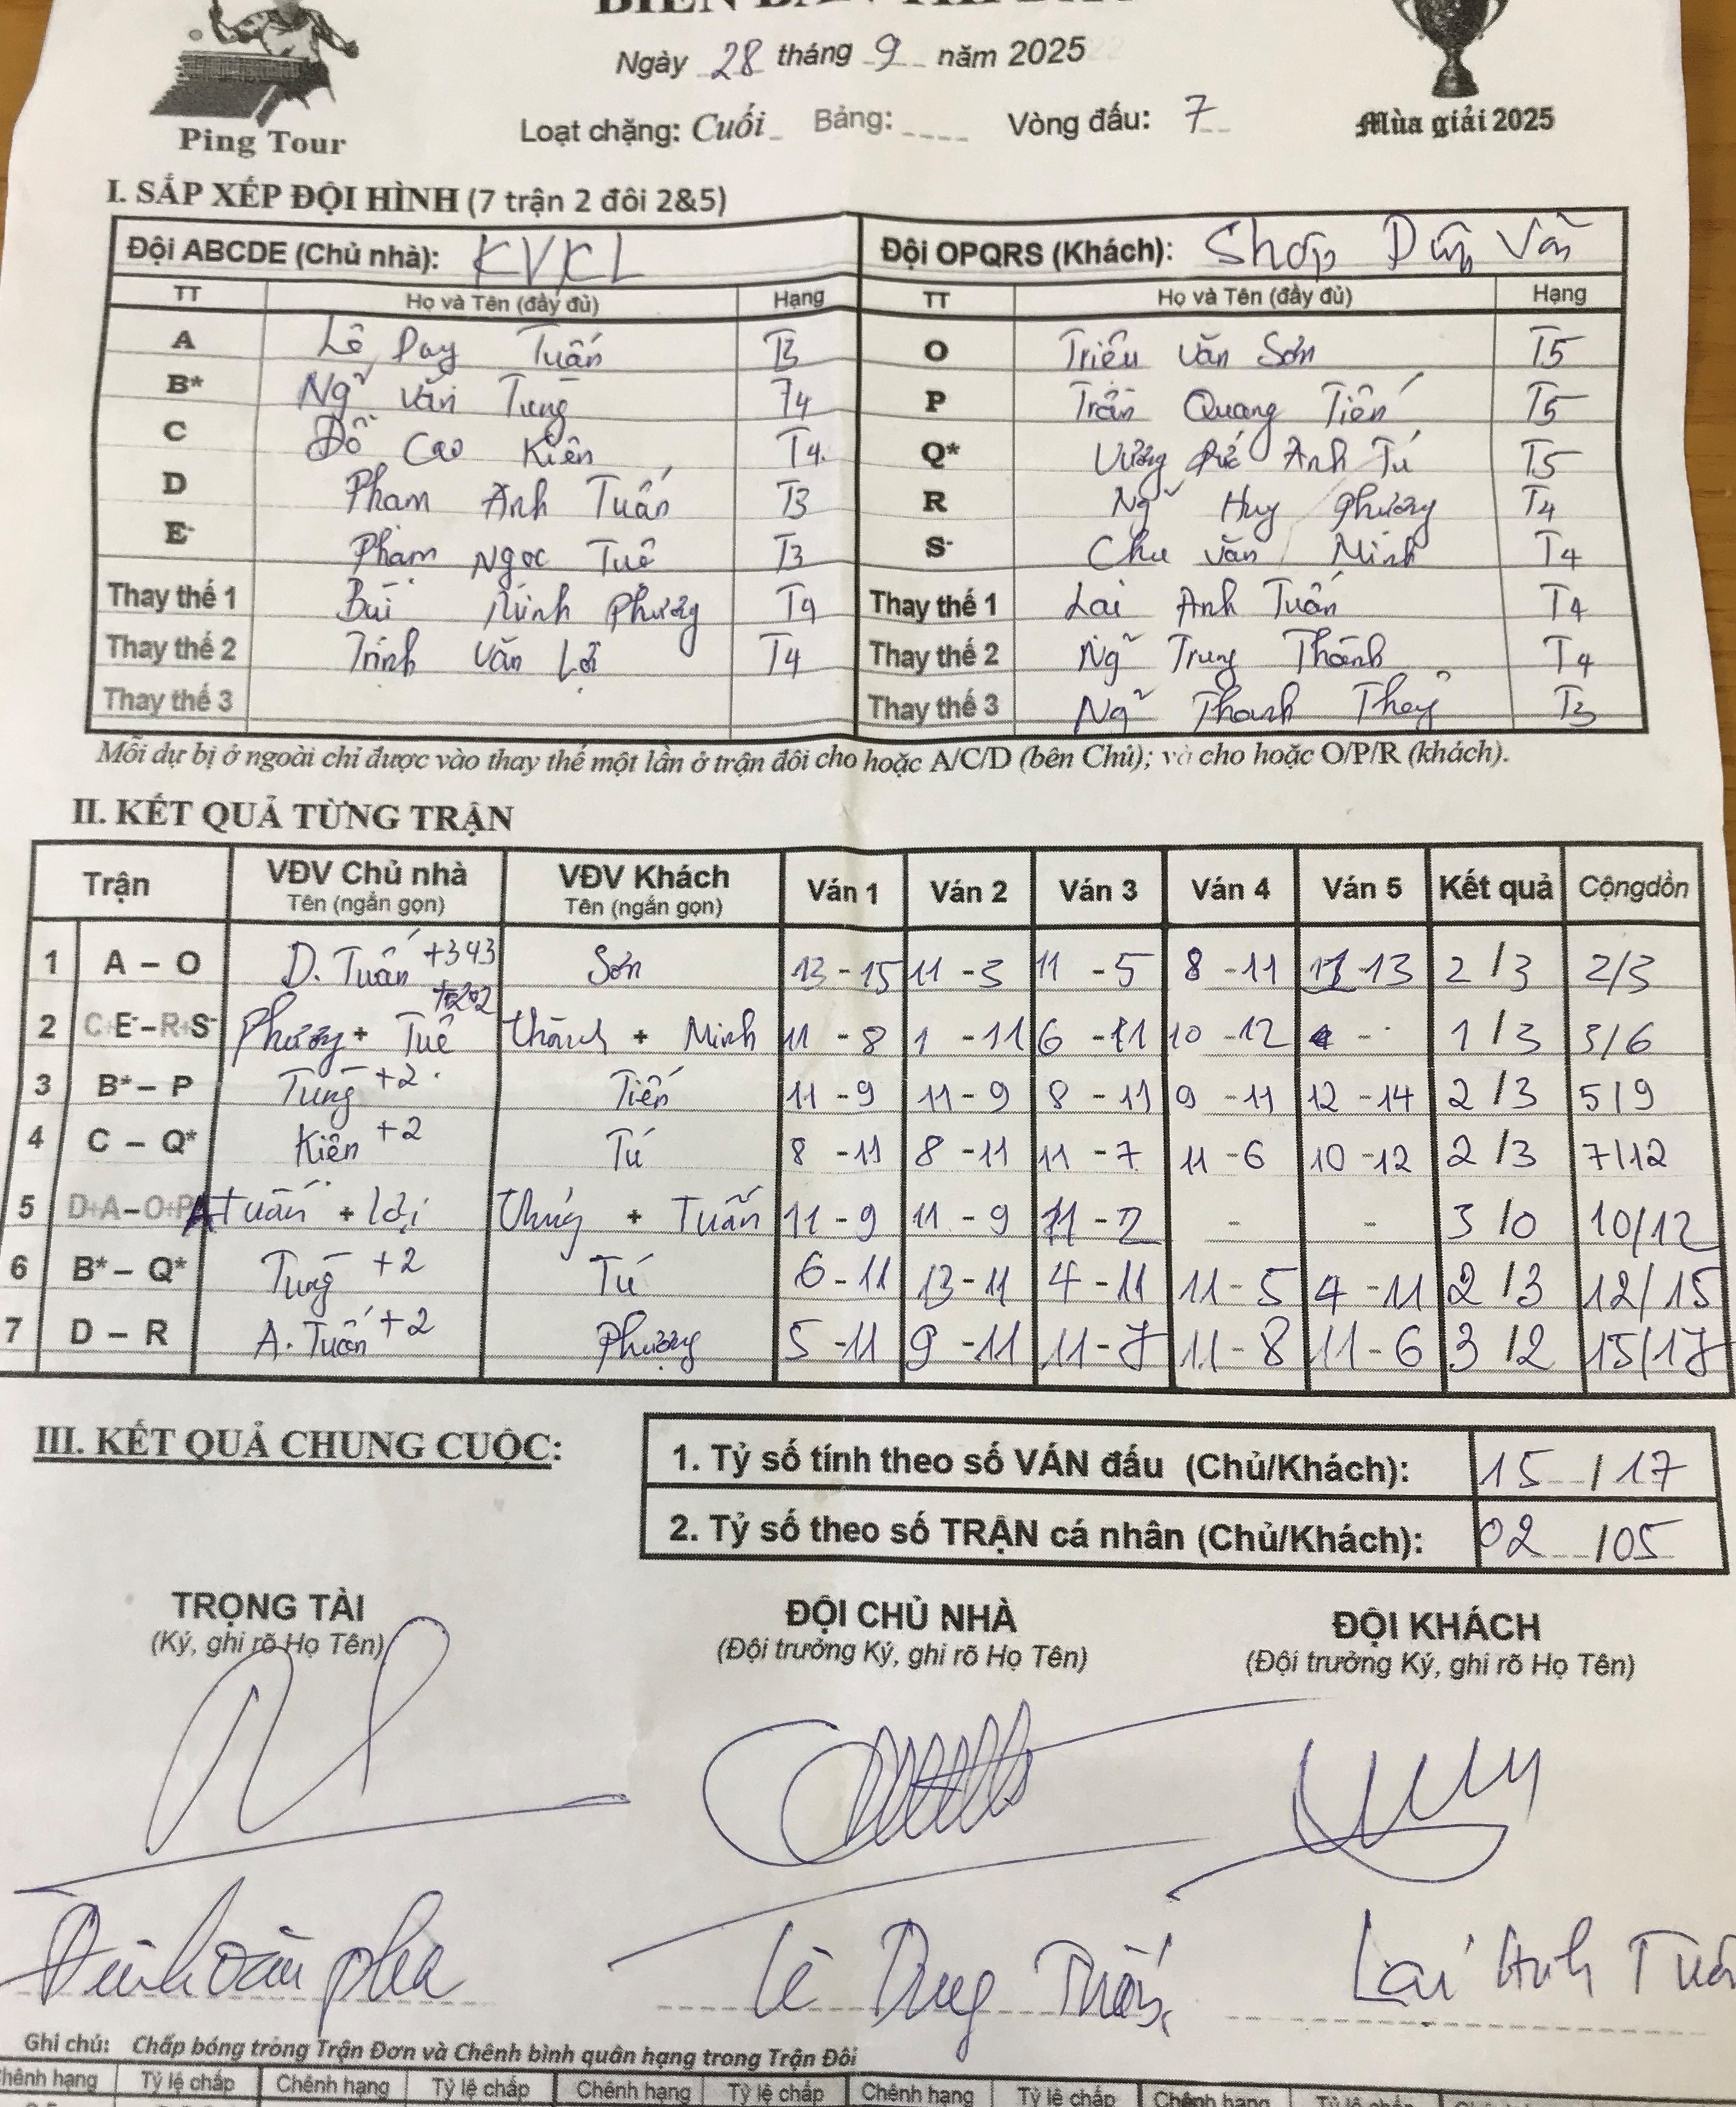 Ngày 28 tháng 9 năm 2025
Ping Tour
Loạt chặng: Cuối Bảng: Vòng đấu: 7
Mùa giải 2025
I. SẮP XẾP ĐỘI HÌNH (7 trận 2 đôi 2&5)
Đội ABCDE (Chủ nhà): KVKL Đội OPQRS (Khách): Shop Dũng Văn
TT Họ và Tên (đầy đủ) Hạng TT Họ và Tên (đầy đủ) Hạng
A Lê Duy Tuấn T3 O Triệu Văn Sơn T5
B* Ng~ Văn Tùng T4 P Trần Quang Tiến T5
C Đỗ Cao Kiên T4 Q* Vương Đức Anh Tú T5
D Phạm Anh Tuấn T3 R Ng~ Huy Phương T4
E- Phạm Ngọc Tuê T3 S- Chu Văn Minh T4
Thay thế 1 Bùi Minh Phương T4 Thay thế 1 Lại Anh Tuấn T4
Thay thế 2 Trịnh Văn Lợi T4 Thay thế 2 Ng~ Trung Thành T4
Thay thế 3 Thay thế 3 Ng~ Thanh T3
Mỗi dự bị ở ngoài chỉ được vào thay thế một lần ở trận đôi cho hoặc A/C/D (bên Chủ); và cho hoặc O/P/R (khách).
II. KẾT QUẢ TỪNG TRẬN
Trận VĐV Chủ nhà VĐV Khách Ván 1 Ván 2 Ván 3 Ván 4 Ván 5 Kết quả Cộngdồn
Tên (ngắn gọn) Tên (ngắn gọn)
1 A – O D. Tuấn +343 Sơn 13 - 15 11 - 3 11 - 5 8 - 11 11-13 2 /3 2/3
2 C+E-–R+S- Phương + Tuê +202 Thành + Minh 11 - 8 1 - 11 6 - 11 10 - 12 - 1 /3 3/6
3 B*– P Tùng +2 Tiến 11 - 9 11 - 9 8 - 11 9 - 11 12 - 14 2 /3 5/9
4 C – Q* Kiên +2 Tú 8 - 11 8 - 11 11 - 7 11 - 6 10 - 12 2 /3 7/12
5 D+A–O+P A Tuấn + Lợi + Tuấn 11 - 9 11 - 9 11 - 2 - - 3 /0 10/12
6 B*– Q* Tùng +2 Tú 6 - 11 13 - 11 4 - 11 11 - 5 4 - 11 2 /3 12/15
7 D – R A. Tuấn +2 Phương 5 - 11 9 - 11 11 - 7 11 - 8 11 - 6 3 /2 15/17
III. KẾT QUẢ CHUNG CUỘC:
1. Tỷ số tính theo số VÁN đấu (Chủ/Khách): 15 / 17
2. Tỷ số theo số TRẬN cá nhân (Chủ/Khách): 02 /05
TRỌNG TÀI ĐỘI CHỦ NHÀ ĐỘI KHÁCH
(Ký, ghi rõ Họ Tên) (Đội trưởng Ký, ghi rõ Họ Tên) (Đội trưởng Ký, ghi rõ Họ Tên)
Lại Anh
Ghi chú: Chấp bóng trong Trận Đơn và Chênh bình quân hạng trong Trận Đôi
Chênh hạng Tỷ lệ chấp Chênh hạng Tỷ lệ chấp Chênh hạng Tỷ lệ chấp Chênh hạng Tỷ lệ chấp Chênh hạng Tỷ lệ chấp